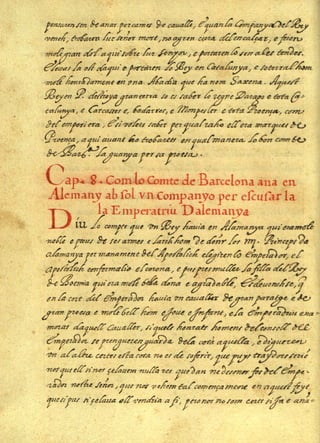 pensaren sen de anar per camins de cavalls, E quan la Companya del Rey
veneh, trobaren lur senyor mort, no agren cura del encalçar, e foren
molt gran dol aqui sobre lur senyor, e portaren lo sen a les tendes.
E levas la ost daqui e portaren lo Rey en Catalunya, e soterral hom
molt honradament en una Abadia que ha nom Saxena. Aquest
Rey en P. destroya gran terra so es saber lo regne Darago e tota Ca-
talunya, e Carcases e, badarres, e Monpesler e tota Proença, com
del emperi era, E si volets saber per qual raho ell era marques de
Proença, aqui avant ho trobarets en qual manera lo bon comte
de Barᵃ. la guanya per sa proesa.
Cap. 8. Com lo Comte de Barcelona ana en
Alemany ab sol vn companyo per escusar la
la Emperatriu Dalemanya
Diu lo compte que vn Rey havia en Alamanya qui era molt
noble e prous de ses armes e larch hom de
alamanya per manament del Apostolich elegiren lo Emperador, el
Apostolich confermalio el corona, e puys pres muller la filla del Rey
de Boemia qui era molt bella dona e agradable, E deuench se, q̃
en la cort del Emperador havia vn cavaller de gran paratge e de
gran proesa e molt bell hom e jove e
moras daquell Cavaller, si que ls honrats homens del consell del
Emperador se prengueren guarda dela cosa aquella, e digueren
vn al altre certes esta cosa no es de soferir, que puys traydors serie
nos quell si nos celavem nulla res que dan ne desonor fos del Empe-
rador nostre senyor, que nos vehem tal començament en aquest feyt,
que si pus si celava ell vendria a fi, pero nor no som certs si ja e ama-